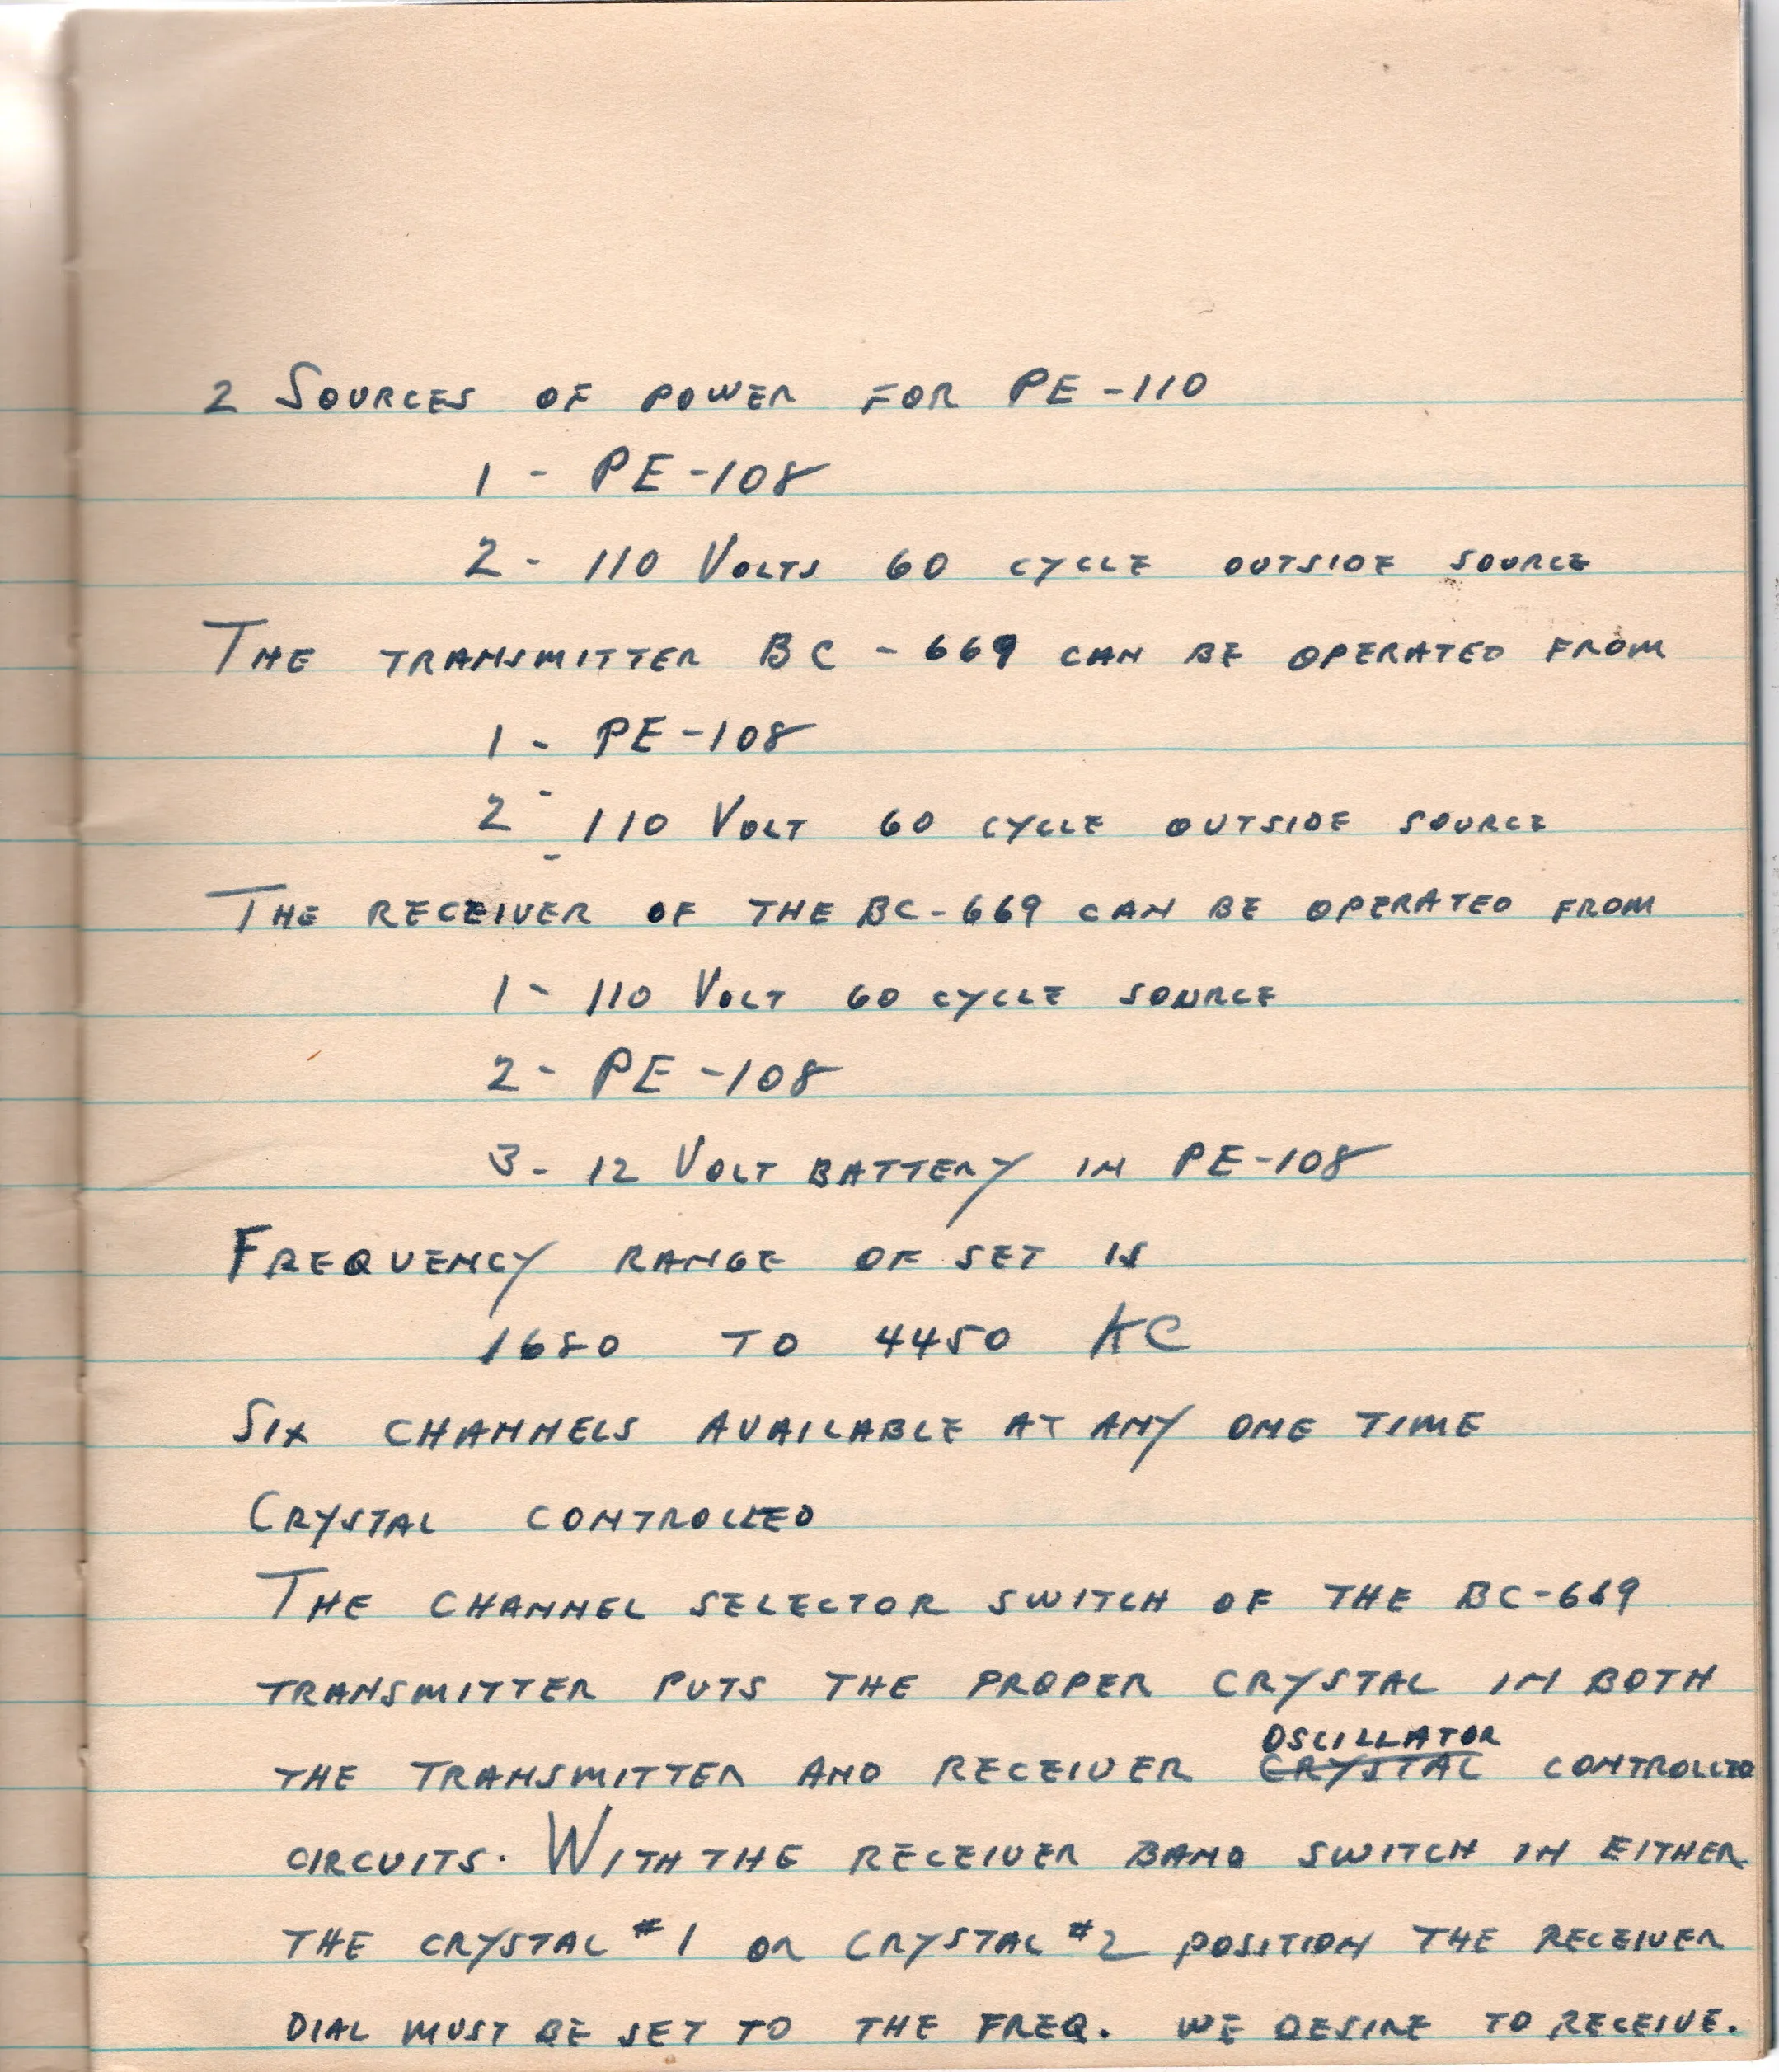 2 SOURCES OF POWER FOR PE-110
1 - PE-108
2 - 110 VOLTS 60 CYCLE OUTSIDE SOURCE
THE TRANSMITTER BC-669 CAN BE OPERATED FROM
1 - PE-108
2 - 110 VOLT 60 CYCLE OUTSIDE SOURCE
THE RECEIVER OF THE BC-669 CAN BE OPERATED FROM
1 - 110 VOLT 60 CYCLE SOURCE
2 - PE-108
3 - 12 VOLT BATTERY IN PE-108
FREQUENCY RANGE OF SET IS
1680 TO 4450 KC
SIX CHANNELS AVAILABLE AT ANY ONE TIME
CRYSTAL CONTROLLED
THE CHANNEL SELECTOR SWITCH OF THE BC-669
TRANSMITTER PUTS THE PROPER CRYSTAL IN BOTH
OSCILLATOR
THE TRANSMITTER AND RECEIVER CRYSTAL CONTROLLED
CIRCUITS. WITH THE RECEIVER BAND SWITCH IN EITHER
THE CRYSTAL #1 OR CRYSTAL #2 POSITION THE RECEIVER
DIAL MUST BE SET TO THE FREQ. WE DESIRE TO RECEIVE.